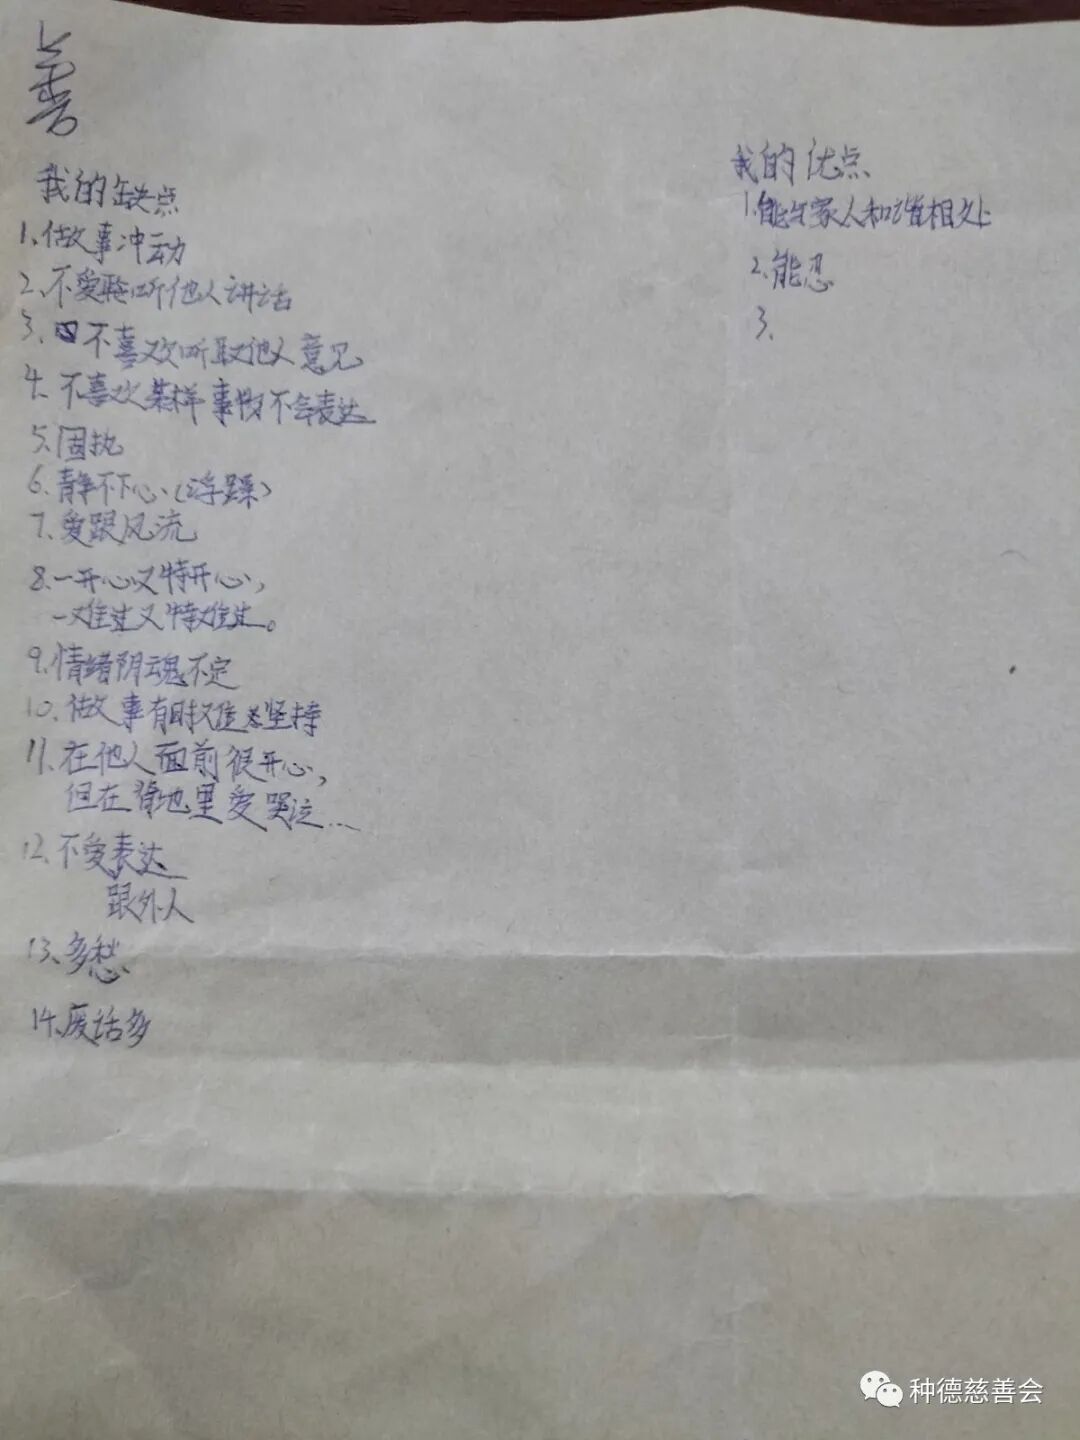 我的缺点
1、做事冲动
2、不爱聆听他人讲话
3、不喜欢听取他人意见
4、不喜欢某样事物不会表达
5、固执
6、静不下心(浮躁)
7、爱跟风流
8、一开心又特开心,
一难过又特难过。
9、情绪阴魂不定
10、做事有时候坚持
11、在他人面前很开心,
但在背地里爱哭泣...
12、不爱表达
跟外人
13、多愁
14、废话多
我的优点
1、能与家人和谐相处
2、能忍
3、
种德慈善会